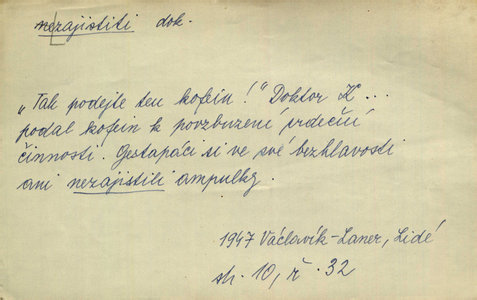 nezajistiti dok.
„Tak podejte ten kofein!“ Doktor K...
podal kofein k povzbuzení srdeční
činnosti. Gestapáci si ve své bezhlavosti
ani nezajistili ampulky.
1947 Václavík-Laner, Lidé
str. 10, ř. 32